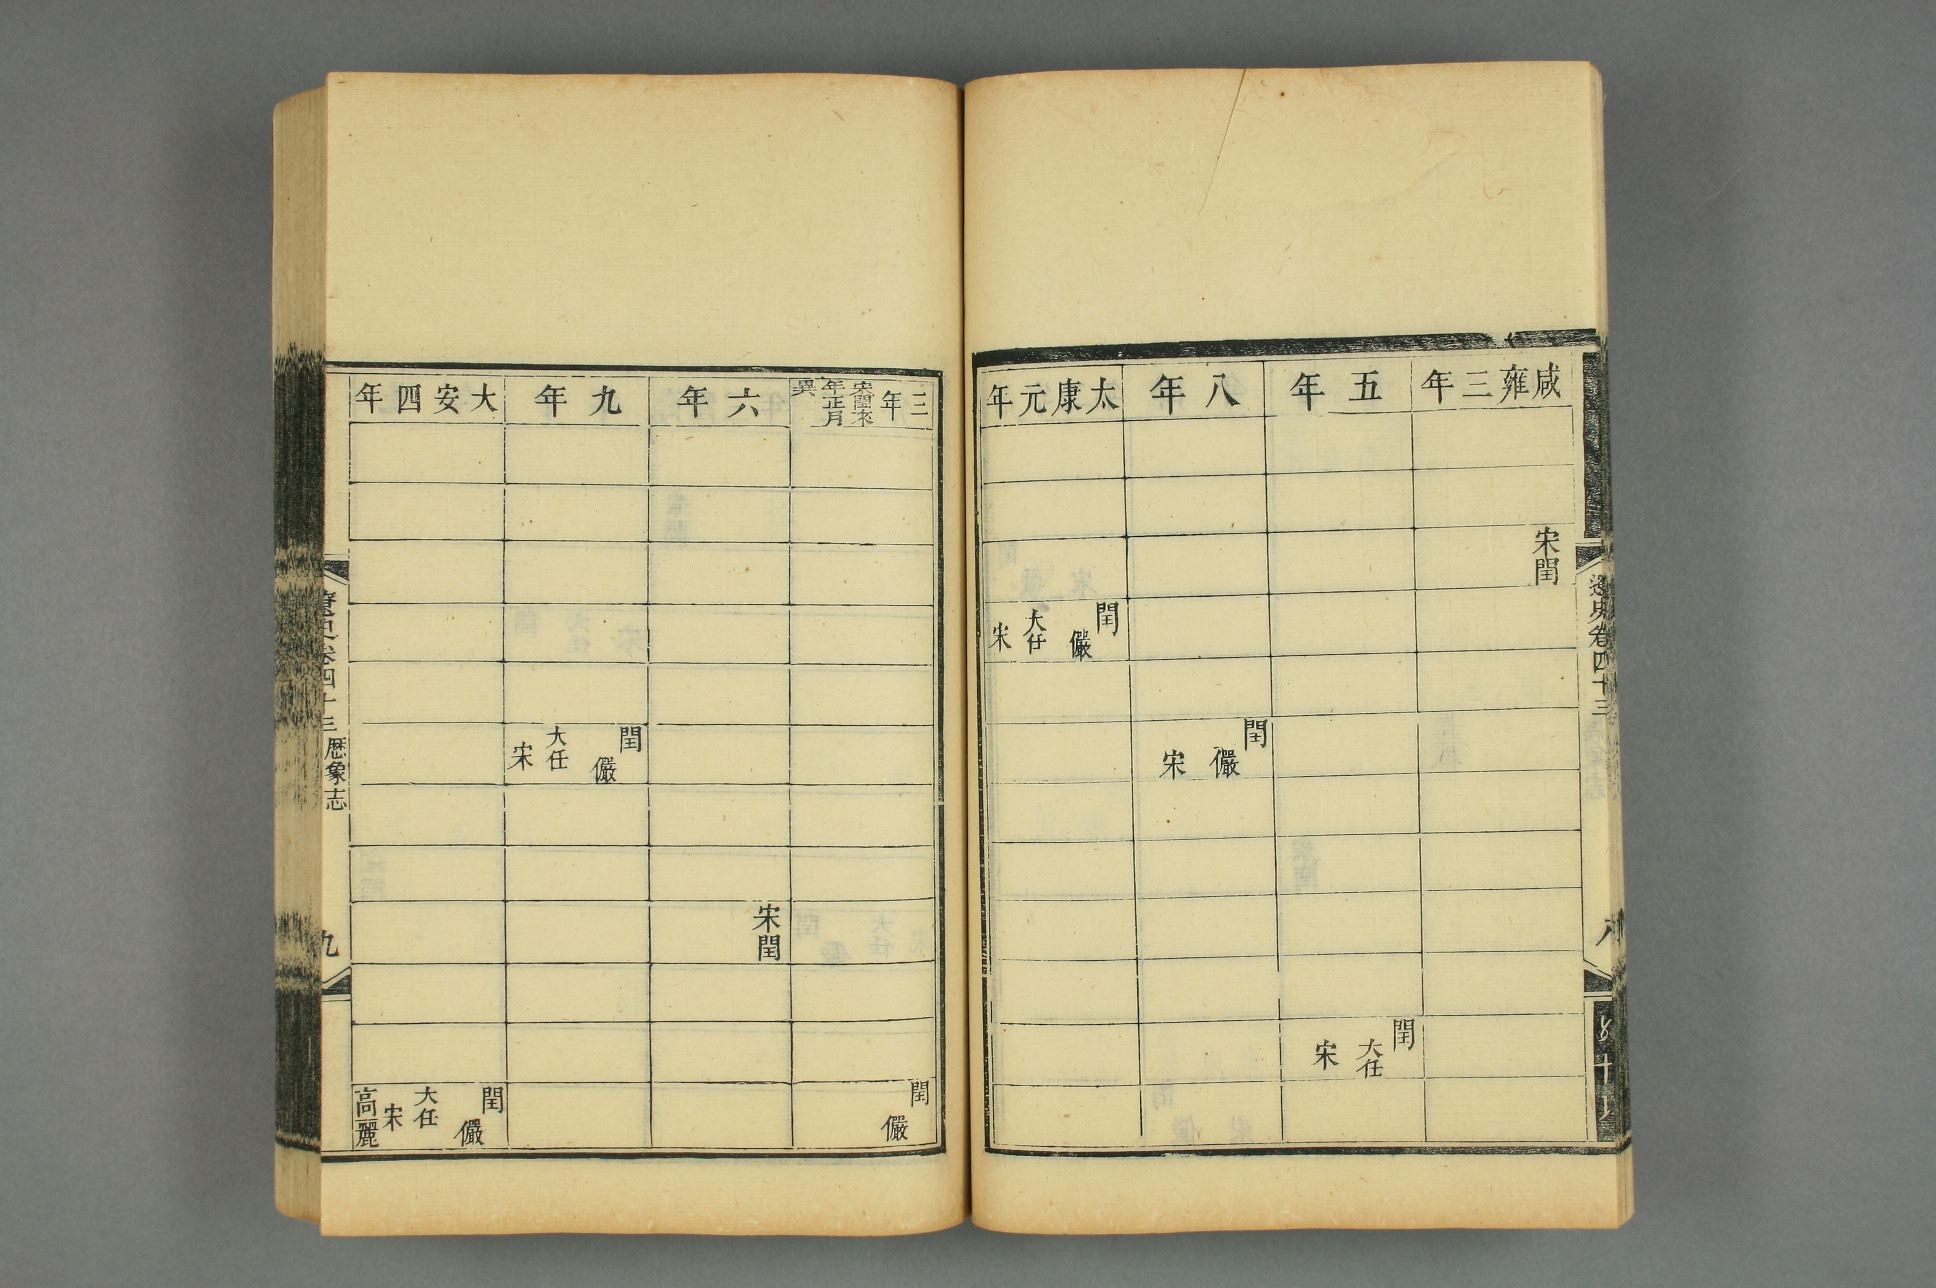 遼史卷四十三
八
咸雍三年
宋閏
五年
閏
大任
宋
八年
閏
儼
宋
太康元年
閏
儼
大任
宋
三年
宋閏來
年正月
異
閏
儼
六年
宋閏
九年
閏
儼
大任
宋
大安四年
閏
儼
大任
宋
高麗
遼史卷四十三
歷象志
九